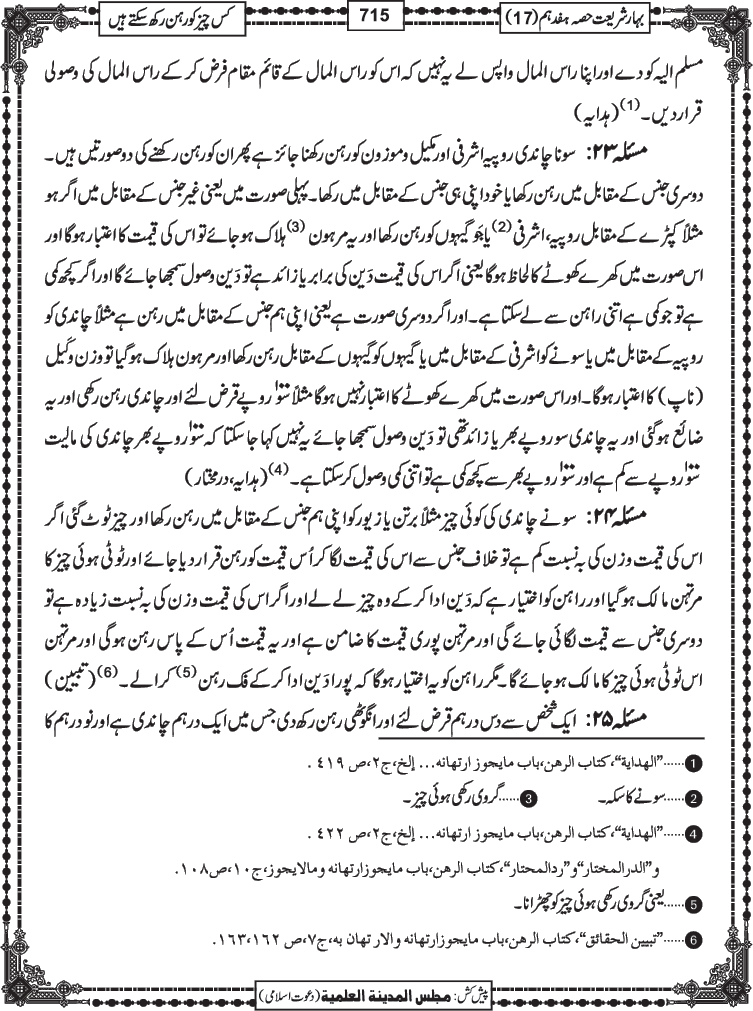 بہارِ شریعت حصہ ہفدہم (17)
715
کس چیز کو رہن رکھ سکتے ہیں
مسلم الیہ کو دے اور اپنا راس المال واپس لے یہ نہیں کہ اس کو راس المال کے قائم مقام فرض کر کے راس المال کی وصولی
قرار دیں۔(1) (ہدایہ)
مسئلہ ۲۳: سونا چاندی روپیہ اشرفی اور مکیل و موزون کو رہن رکھنا جائز ہے پھر ان کو رہن رکھنے کی دو صورتیں ہیں۔
دوسری جنس کے مقابل میں رہن رکھا یا خود اپنی ہی جنس کے مقابل میں رکھا۔ پہلی صورت میں یعنی غیر جنس کے مقابل میں اگر ہو
مثلاً کپڑے کے مقابل روپیہ، اشرفی(2) یا جَو گیہوں کو رہن رکھا اور یہ مرہون(3) ہلاک ہو جائے تو اس کی قیمت کا اعتبار ہوگا اور
اس صورت میں کھرے کھوٹے کا لحاظ ہوگا یعنی اگر اس کی قیمت دَین کی برابر یا زائد ہے تو دَین وصول سمجھا جائے گا اور اگر کچھ کمی
ہے تو جو کمی ہے اتنی راہن سے لے سکتا ہے۔ اور اگر دوسری صورت ہے یعنی اپنی ہم جنس کے مقابل میں رہن ہے مثلاً چاندی کو
روپیہ کے مقابل میں یا سونے کو اشرفی کے مقابل میں یا گیہوں کو گیہوں کے مقابل رہن رکھا اور مرہون ہلاک ہوگیا تو وزن و کَیل
(ناپ) کا اعتبار ہوگا۔ اور اس صورت میں کھرے کھوٹے کا اعتبار نہیں ہوگا مثلاً سو۱۰۰ روپے قرض لئے اور چاندی رہن رکھی اور یہ
ضائع ہوگئی اور یہ چاندی سو روپے بھر یا زائد تھی تو دَین وصول سمجھا جائے یہ نہیں کہا جا سکتا کہ سو۱۰۰ روپے بھر چاندی کی مالیت
سو۱۰۰ روپے سے کم ہے اور سو۱۰۰ روپے بھر سے کچھ کمی ہے تو اتنی کمی وصول کر سکتا ہے۔(4) (ہدایہ، درمختار)
مسئلہ ۲۴: سونے چاندی کی کوئی چیز مثلاً برتن یا زیور کو اپنی ہم جنس کے مقابل میں رہن رکھا اور چیز ٹوٹ گئی اگر
اس کی قیمت وزن کی بہ نسبت کم ہے تو خلاف جنس سے اس کی قیمت لگا کر اُس قیمت کو رہن قرار دیا جائے اور ٹوٹی ہوئی چیز کا
مرتہن مالک ہوگیا اور راہن کو اختیار ہے کہ دَین ادا کر کے وہ چیز لے لے اور اگر اس کی قیمت وزن کی بہ نسبت زیادہ ہے تو
دوسری جنس سے قیمت لگائی جائے گی اور مرتہن پوری قیمت کا ضامن ہے اور یہ قیمت اُس کے پاس رہن ہوگی اور مرتہن
اس ٹوٹی ہوئی چیز کا مالک ہو جائے گا۔ مگر راہن کو یہ اختیار ہوگا کہ پورا دَین ادا کر کے فک رہن(5) کرا لے۔(6) (تبیین)
مسئلہ ۲۵: ایک شخص سے دس درہم قرض لئے اور انگوٹھی رہن رکھ دی جس میں ایک درہم چاندی ہے اور نو درہم کا
1 ......”الھدایة“،کتاب الرھن،باب مایجوز ارتھانه... إلخ،ج۲،ص ۴۱۹ .
2 ......سونے کا سکہ۔ 3 ......گروی رکھی ہوئی چیز۔
4 ......”الھدایة“،کتاب الرھن،باب مایجوز ارتھانه... إلخ،ج۲،ص ۴۲۲ .
و”الدرالمختار“و”ردالمحتار“،کتاب الرھن،باب مایجوزارتھانه ومالایجوز،ج۱۰،ص۱۰۸.
5 ......یعنی گروی رکھی ہوئی چیز کو چھڑانا۔
6 ......”تبیین الحقائق“،کتاب الرھن،باب مایجوزارتھانه والار تھان به،ج۷،ص ۱۶۲،۱۶۳.
پیش کش: مجلس المدینة العلمیة (دعوت اسلامی)